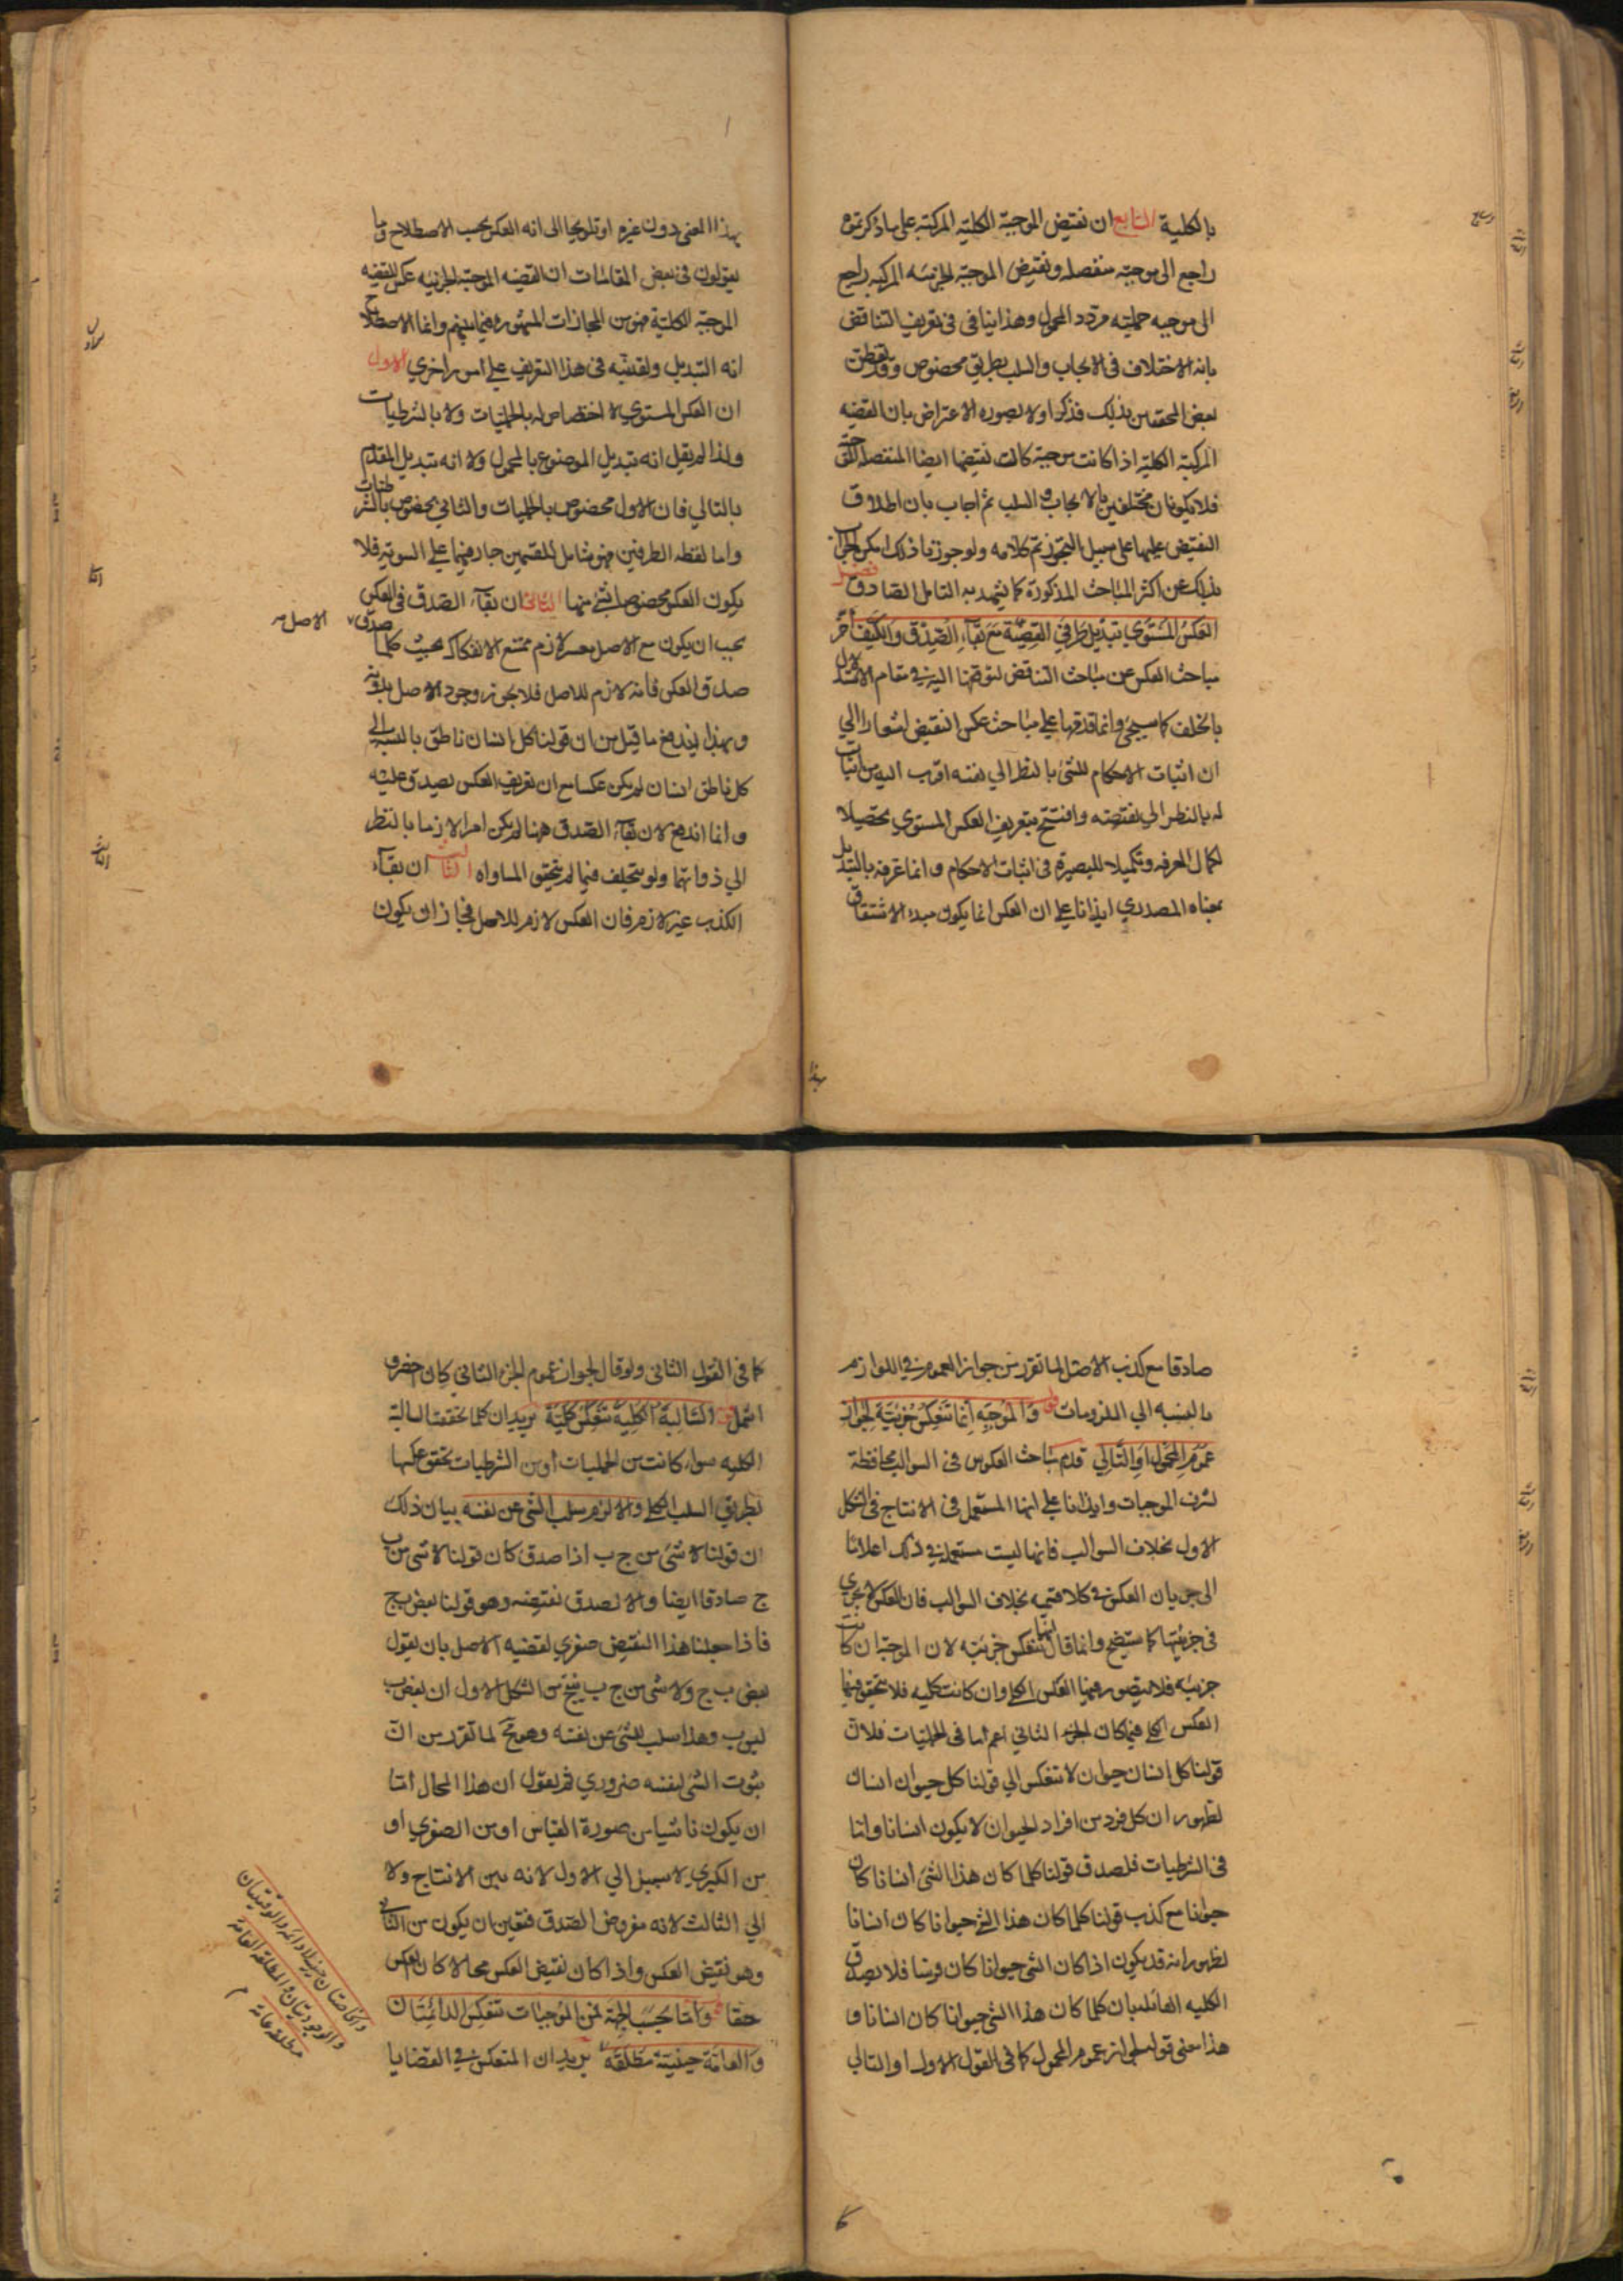 بالكلية السابع ان نقيض الموجبة الكلية المركبة على ما ذكرتموه
راجع الى موجبة منفصلة ونقيض الموجبة الجزئيه المركبه راجع
الى موجبه حمليته مردد المحمول وهذا ينافى فى تعريف التناقض
بانه الاختلاف فى الايجاب والسلب بطريق مخصوص وقد تفطن
بعض المحققين بذلك فذكر اولا بصوره الاعتراض بان القضيه
المركبة الكلية اذا كانت موجبة كانت نقيضها ايضا المنفصلة
فلا يكونان مختلفين بالايجاب والسلب ثم اجاب بان اطلاق
النقيض عليها على سبيل التجوز تم كلامه ولو جوز ما ذلك امكن الجواب
بذلك عن اكثر المباحث المذكورة كما يشهد به التامل الصادق فصل
العكس المستوي تبديل طرفي القضية مع بقاء الصدق والكيف اخر
مباحث العكس عن مباحث التناقض لتوقفها اليه في مقام الاستدلال
بالخلف كما سيجئ وانما قدمها على مباحث عكس النقيض اشعارا الي
ان اثبات الاحكام للشئ بالنظر الي نفسه اقرب اليه من اثبات
له بالنظر الي نقيضه وافتتح بتعريف العكس المستوي تحصيلا
لكمال المعرفه وتكميلا للبصيرة فى اثبات الاحكام وانما عرفه بالتبديل
بمعناه المصدري ايذانا علي ان العكس انما يكون مبدء الاشتقاق
بهذا
بهذا المعنى دون غيره او تلويحا الى انه العكس بحسب الاصطلاح وما
يقولون فى بعض المقامات ان القضيه الموجبة الجزئيه عكس للقضيه
الموجبة الكلية فهو من المجازات المشهوره فيما بينهم وانما الاصطلاح
انه التبديل ولقد نبه فى هذا التعريف علي امور اخري الاول
ان العكس المستوي لا اختصاص له بالحمليات ولا بالشرطيات
ولذا لم يقل انه تبديل الموضوع بالمحمول ولا انه تبديل المقدم
بالتالي فان الاول مخصوص بالحمليات والثاني مخصوص بالشرطيات
واما لفظه الطرفين فهو شامل للقسمين جار فيهما علي السوية فلا
يكون العكس مخصوصا بشئ منهما الثاني ان بقاء الصدق فى العكس
يجب ان يكون مع الاصل بعسر لازم ممتنع الانفكاك بحيث كلما صدق الاصل
صدق العكس فانه لازم للاصل فلا يجوز وجود الاصل بدونه
وبهذا يندفع ما قيل من ان قولنا كل انسان ناطق بالنسبة الي
كل ناطق انسان لم يكن عكسا مع ان تعريف العكس يصدق عليه
وانما اندفع لان بقاء الصدق ههنا لم يكن امرا لازما بالنظر
الي ذواتهما ولو يتخلف فيما لم يتحقق المساواه الثالث ان بقاء
الكذب غير لازم فان العكس لازم للاصل فجاز ان يكون
صادقا مع كذب الاصل لما تقرر من جواز العموم في اللوازم
بالنسبه الي الملزومات والموجبه انما تنعكس جزئية لجواز
عموم المحمول او التالي قدم مباحث العكوس فى السوالب محافظة
لشرف الموجبات وايذانا علي انها المستعمل فى الانتاج فى الشكل
الاول بخلاف السوالب فانها ليست مستعمله في ذلك اعلانا
الى جريان العكس في كلا قسميه بخلاف السوالب فان العكس لا يجري
فى جزئيتها كما ستضح وانما قال انها تنعكس جزئيه لان الموجبة ان كانت
جزئيه فلا يتصور فيها العكس الكلي وان كانت كليه فلا يتحقق فيها
العكس الكلي فيما كان الجزء الثاني اعم اما فى الحمليات فلان
قولنا كل انسان حيوان لا تنعكس الي قولنا كل حيوان انسان
لظهور ان كل فرد من افراد الحيوان لا يكون انسانا واما
فى الشرطيات فلصدق قولنا كلما كان هذا الشئ انسانا كان
حيوانا مع كذب قولنا كلما كان هذا الشئ حيوانا كان انسانا
لظهور انه قد يكون اذا كان الشئ حيوانا كان فرسا فلا يصدق
الكليه القائله بان كلما كان هذا الشئ حيوانا كان انسانا و
هذا معنى قوله لجواز عموم المحمول كما فى القول الاول او التالي
كما
كما فى القول الثانى ولو قال لجواز عموم الجزء الثاني كان اخصر و
اشمل والسالبة الكلية تنعكس كلية يريد ان كلما تحققت السالبة
الكليه سواء كانت من الحمليات او من الشرطيات تحقق عكسها
بطريق السلب الكلي والا لزم سلب الشئ عن نفسه بيان ذلك
ان قولنا لا شئ من ج ب اذا صدق كان قولنا لا شئ من ب
ج صادقا ايضا والا لصدق نقيضه وهو قولنا بعض ب ج
فاذا جعلنا هذا النقيض صغري لقضيه الاصل بان يقول
بعض ب ج ولا شئ من ج ب ينتج من الشكل الاول ان بعض ب
ليس ب وهذا سلب للشئ عن نفسه وهو مح لما تقرر من ان
ثبوت الشئ لنفسه ضروري ثم يقول ان هذا المحال اما
ان يكون ناشيا من صورة القياس او من الصغري او
من الكبري لا سبيل الي الاول لانه بين الانتاج ولا
الي الثالث لانه مفروض الصدق فتعين ان يكون من الثاني
وهو نقيض العكس واذا كان نقيض العكس محالا كان العكس
حقا واما بحسب الجهة فمن الموجبات تنعكس الدائمتان
والعامة حينية مطلقه يريد ان المنعكس في القضايا
والخاصتان حينيه لا دائمه والوقتيتان
والوجوديتان والمطلقه العامة
مطلقه عامة م